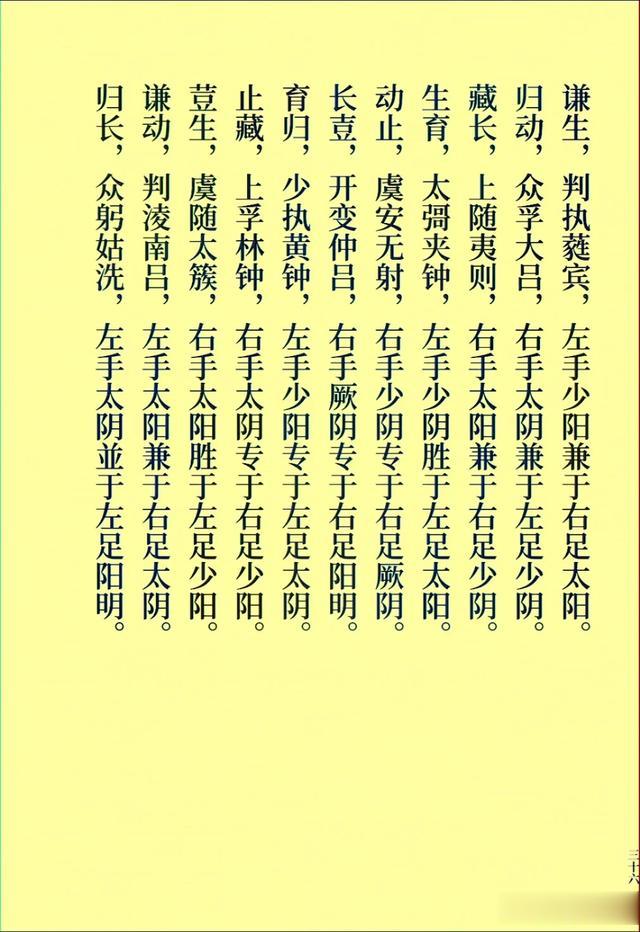 谦生，判执蕤宾，左手少阳兼于右足太阳。
归动，众孚大吕，右手太阴兼于左足少阴。
藏长，上随夷则，右手太阳兼于右足少阴。
生育，太彁夹钟，左手少阴胜于左足太阳。
动止，虞安无射，右手少阴专于右足厥阴。
长荁，开变仲吕，右手厥阴专于右足阳明。
育归，少执黄钟，左手少阳专于左足太阴。
止藏，上孚林钟，右手太阴专于右足少阳。
荁生，虞随太簇，右手太阳胜于左足少阳。
谦动，判凌南吕，左手太阳兼于右足太阴。
归长，众躬姑洗，左手太阴並于左足阳明。
三十六